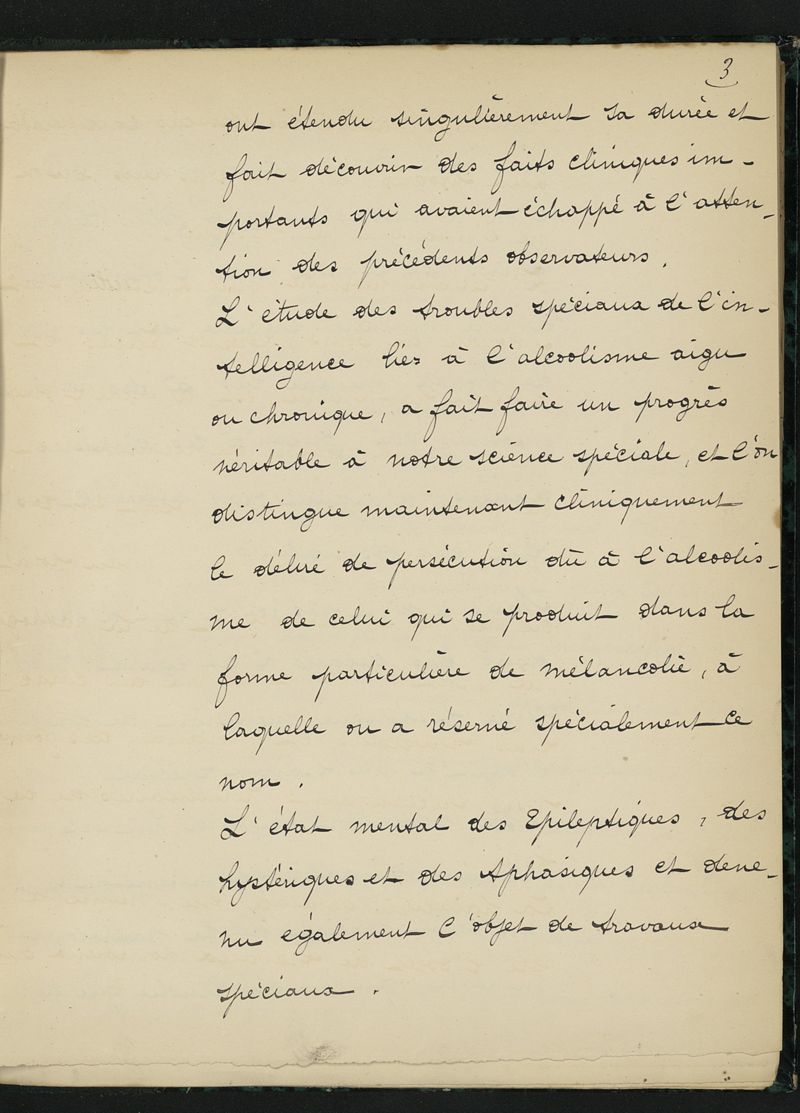 3
ont étendu singulièrement sa durée et
fait découvrir des faits cliniques im-
portants qui avaient échappé à l'atten-
tion des précédents observateurs.
L'étude des troubles spéciaux de l'in-
telligence liés à l'alcoolisme aigu
ou chronique, a fait faire un progrès
véritable à notre science spéciale, et l'on
distingue maintenant cliniquement
le délire de persécution dû à l'alcoolis-
me de celui qui se produit dans la
forme particulière de mélancolie, à
laquelle on a réservé spécialement ce
nom.
L'état mental des Epileptiques, des
hystériques et des Aphasiques et deve-
nu également l'objet de travaux
spéciaux.